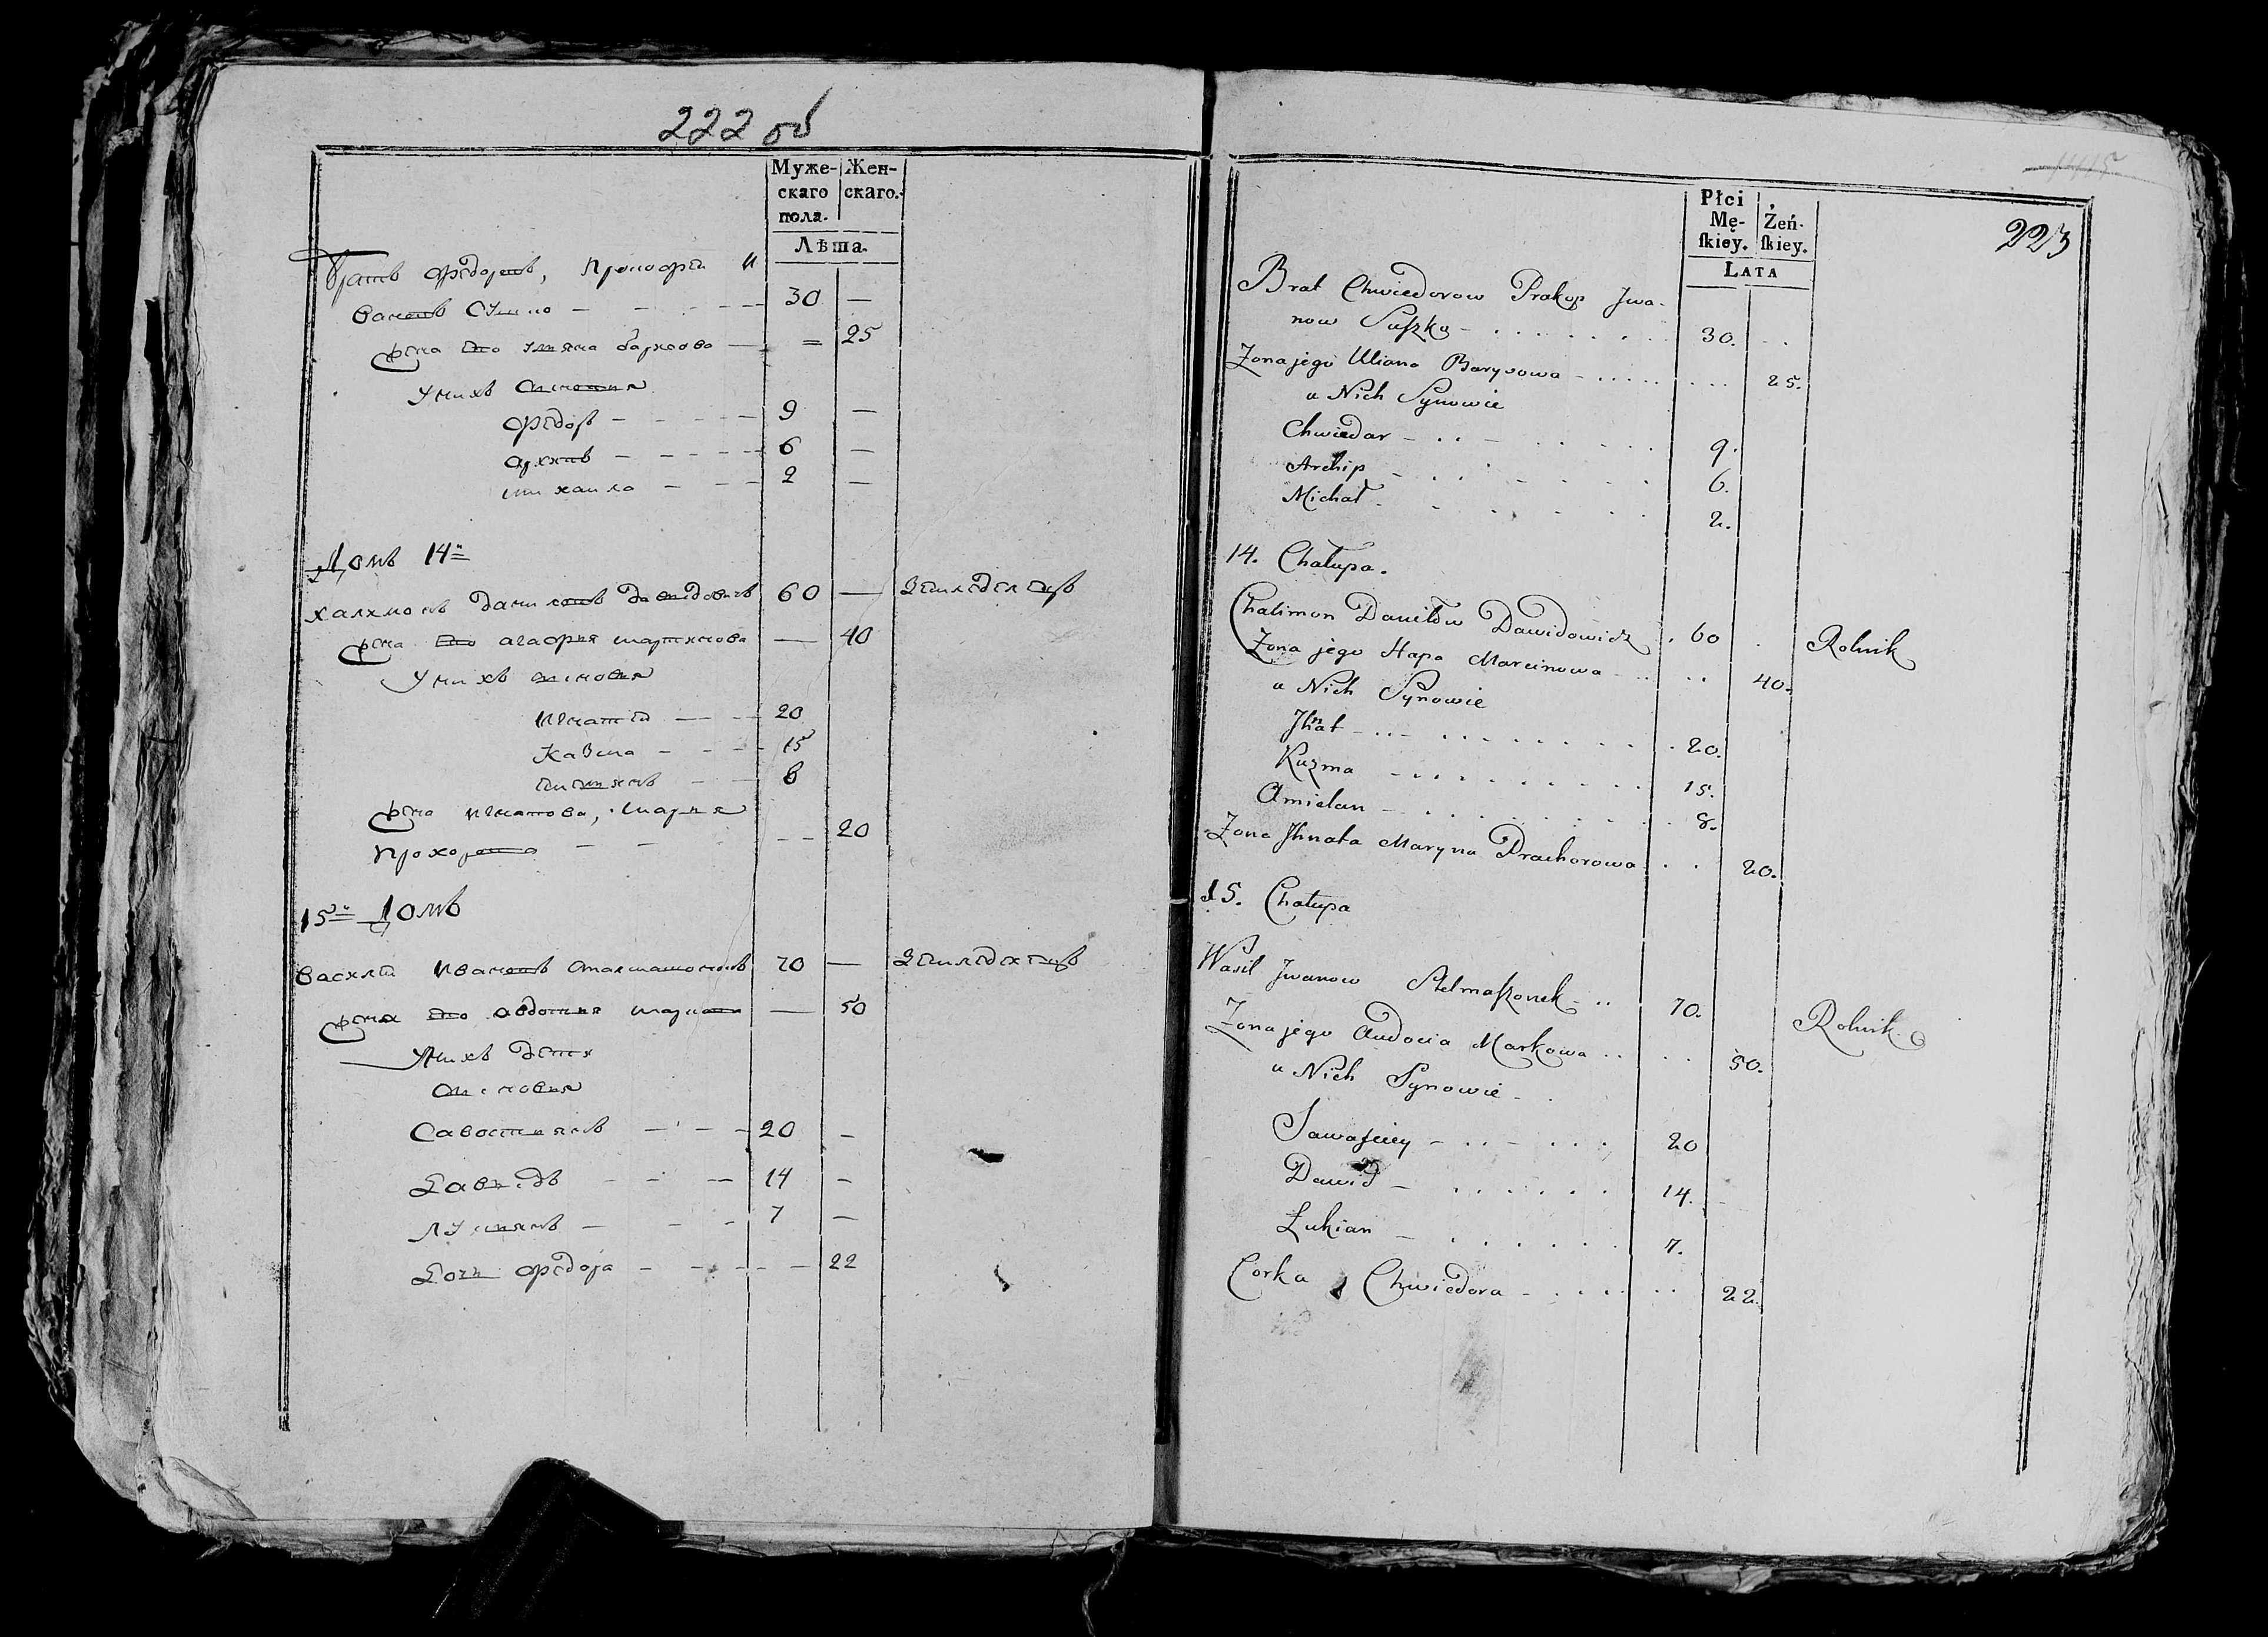 222 об
Муже-
скаго
пола.
Жен-
скаго.
Лѣта.
Братъ Федоровъ, Прокофеи И
вановъ Сушко - - - 30 —
жена Его Ульяна борисова — = 25
У нихъ сыновья
Федоръ - - - 9 —
архипъ - - - 6 —
михаило - - - 2 —
Домъ 14й
халимонъ даниловъ давидовичъ 60 — Земледелецъ
жена Его агафия мартинова — 40
У нихъ сыновья
игнатей - - 20
Казма - - - 15
Емильянъ - - 8
жена игнатова, марья
прохорова - - - 20
15й Домъ
василей ивановъ стальмашонокъ 70 — Земледелецъ
жена Его авдотья маркова — 50
У нихъ дети
сыновья
Савостьянъ - - - 20 -
Давыдъ - - - 14 -
лукьянъ - - - 7 —
Дочь федора - - - 22
Płci
Mę-
skiey.
Żeń-
skiey.
LATA
223
Brat Chwiedorow Prakop Jwa-
now Suszko - 30.
Zona jego Uliana Barysowa - 25.
u Nich Synowie
Chwiedar - 9.
Archip - 6.
Michał - 2.
14. Chałupa.
Chalimon Daniłow Dawidowicz . 60 . Rolnik
Zona jego Hapa Marcinowa - 40.
u Nich Synowie
Jhnat - 20.
Kuzma - 15.
Amielan - 8.
Zona Jhnata Maryna Prachorowa . . 20.
15. Chałupa
Wasil Jwanow Stelmaszonek - 70. Rolnik
Zona jego Audocia Markowa . . 50.
u Nich Synowie -
Sawasciey - 20
Dawid - 14. -
Łukian - 7.
Corka Chwiedora - 22.